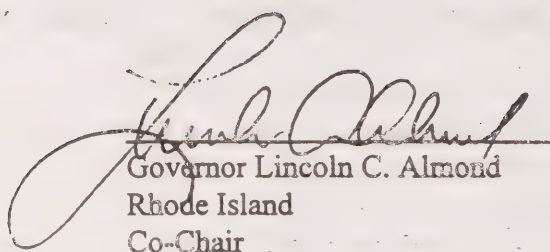 Lincoln Almond
Governor Lincoln C. Almond
Rhode Island
Co-Chair